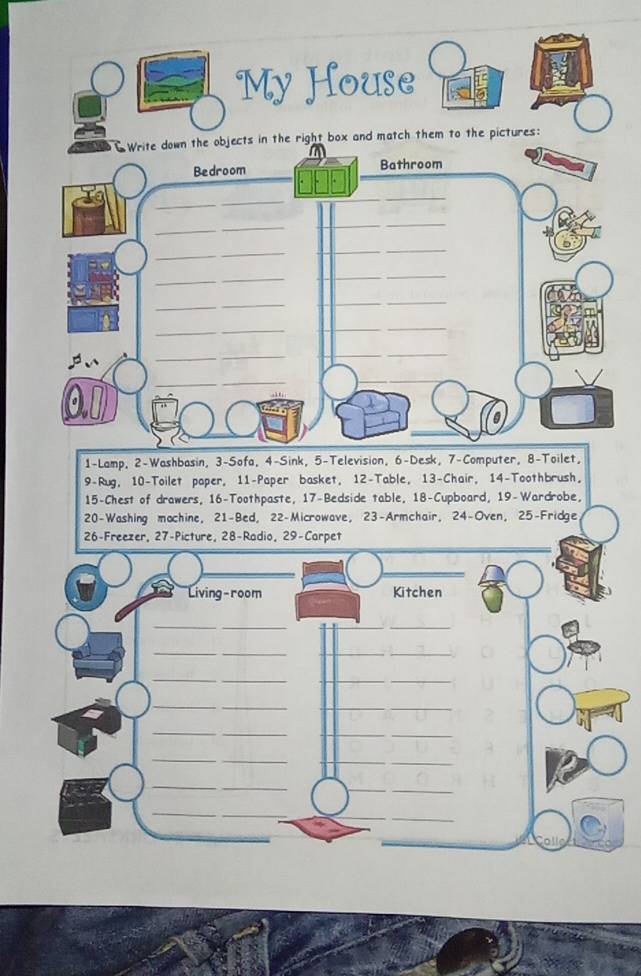 My House
Write down the objects in the right box and match them to the pictures:
Bedroom
Bathroom
1-Lamp, 2-Washbasin, 3-Sofa, 4-Sink, 5-Television, 6-Desk, 7-Computer, 8-Toilet,
9-Rug, 10-Toilet paper, 11-Paper basket, 12-Table, 13-Chair, 14-Toothbrush,
15-Chest of drawers, 16-Toothpaste, 17-Bedside table, 18-Cupboard, 19-Wardrobe,
20-Washing machine, 21-Bed, 22-Microwave, 23-Armchair, 24-Oven, 25-Fridge
26-Freezer, 27-Picture, 28-Radio, 29-Carpet
Living-room
Kitchen